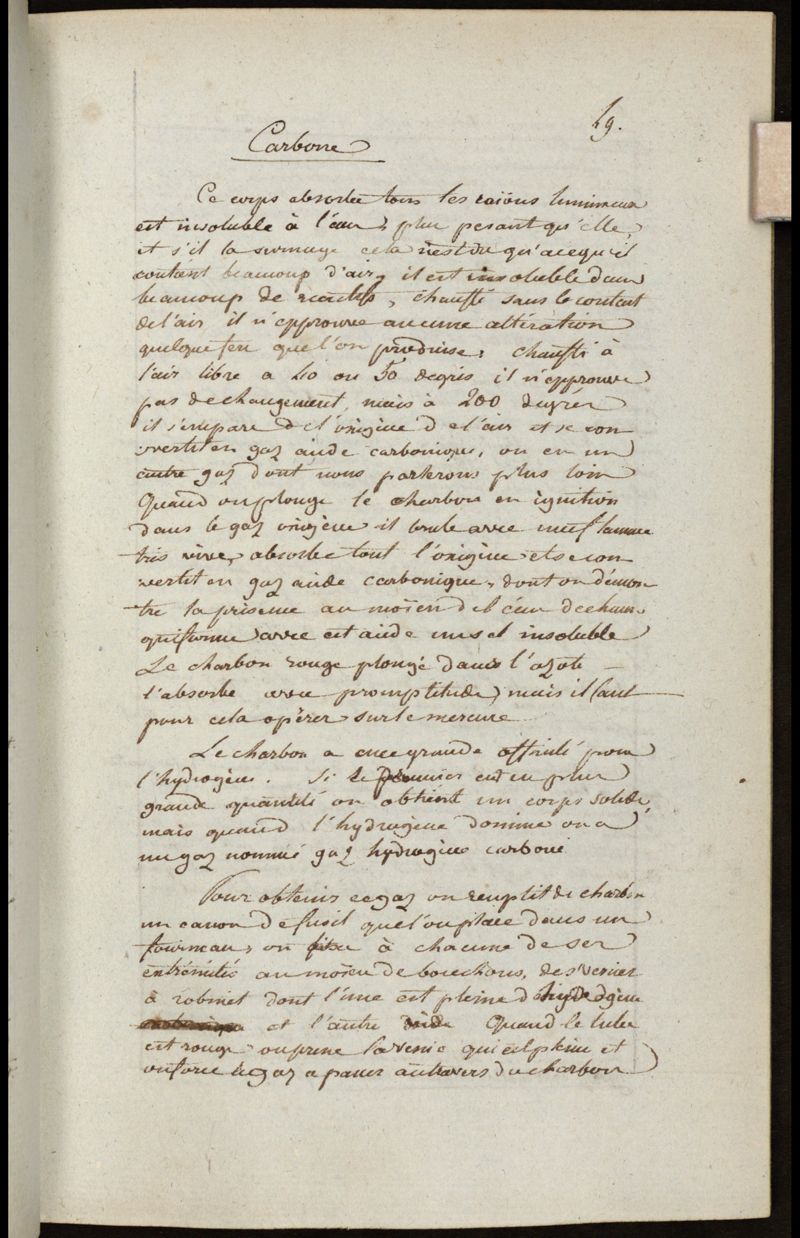 49.
Carbone
Ce corps absorbe tous les raïons lumineux
est insoluble à l'eau, plus pesant qu'elle,
et s'il la surnage cela n'est dû qu'a ce qu'il
contient beaucoup d'air, il est insoluble dans
beaucoup de reactifs, chauffé sans le contact
de l'air il n'epprouve aucune altération
quelque feu que l'on produise; chauffé à
l'air libre a 40 ou 50 degrés il n'epprouve
pas de changement, mais à 200 dégrés
il s'empare de l'oxigène de l'air et se con
vertit en gaz acide carbonique, ou en un
autre gaz dont nous parlerons plus loin
Quand on plonge le charbon en ignition
dans le gaz oxigène il brule avec une flamme
très vive, absorbe tout l'oxigène et se con
vertit en gaz acide carbonique, dont on démon
tre la présence au moïen de l'eau de chaux
qui forme avec cet acide un sel insoluble
Le charbon rouge plongé dans l'azote
l'absorbe avec promptitude, mais il faut
pour cela opérer sur le mercure
Le charbon a une grande affinité pour
l'hydrogène. Si le premier est en plus
grande quantité on obtient un corps solide,
mais quand l'hydrogène domine on a
un gaz nommé gaz hydrogène carboné
Pour obtenir ce gaz on remplit de charbon
un canon de fusil que l'on place dans un
fourneau, on fixe à chacune de ses
extrémités au moïen de bouchons, des vessies
à robinet dont l'une est pleine d'hydrogène
et l'autre vide Quand le tube
est rouge on presse la vessie qui est pleine et
on force le gaz a passer au travers du charbon